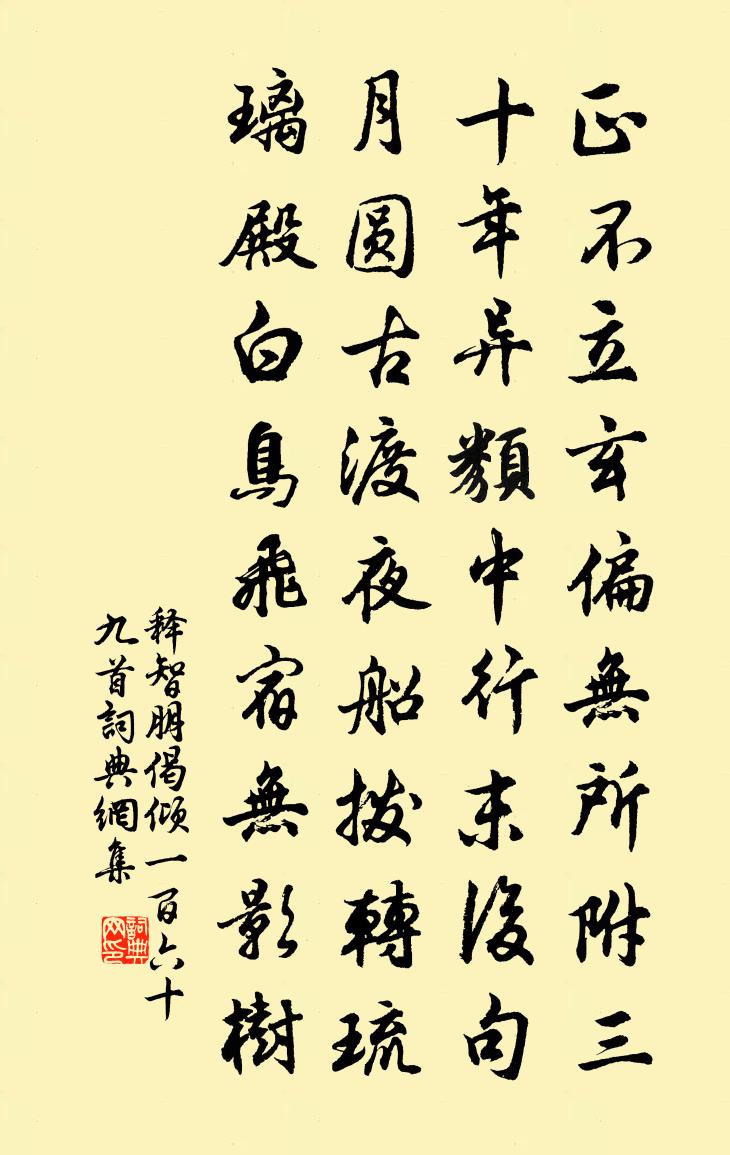 正不立玄偏無所附三
十年异類中行末後句
月圆古渡夜船拨轉琉
璃殿白鳥飛宿無影樹
释智朋偈倾一百六十
九首詞典網集
詞典网印